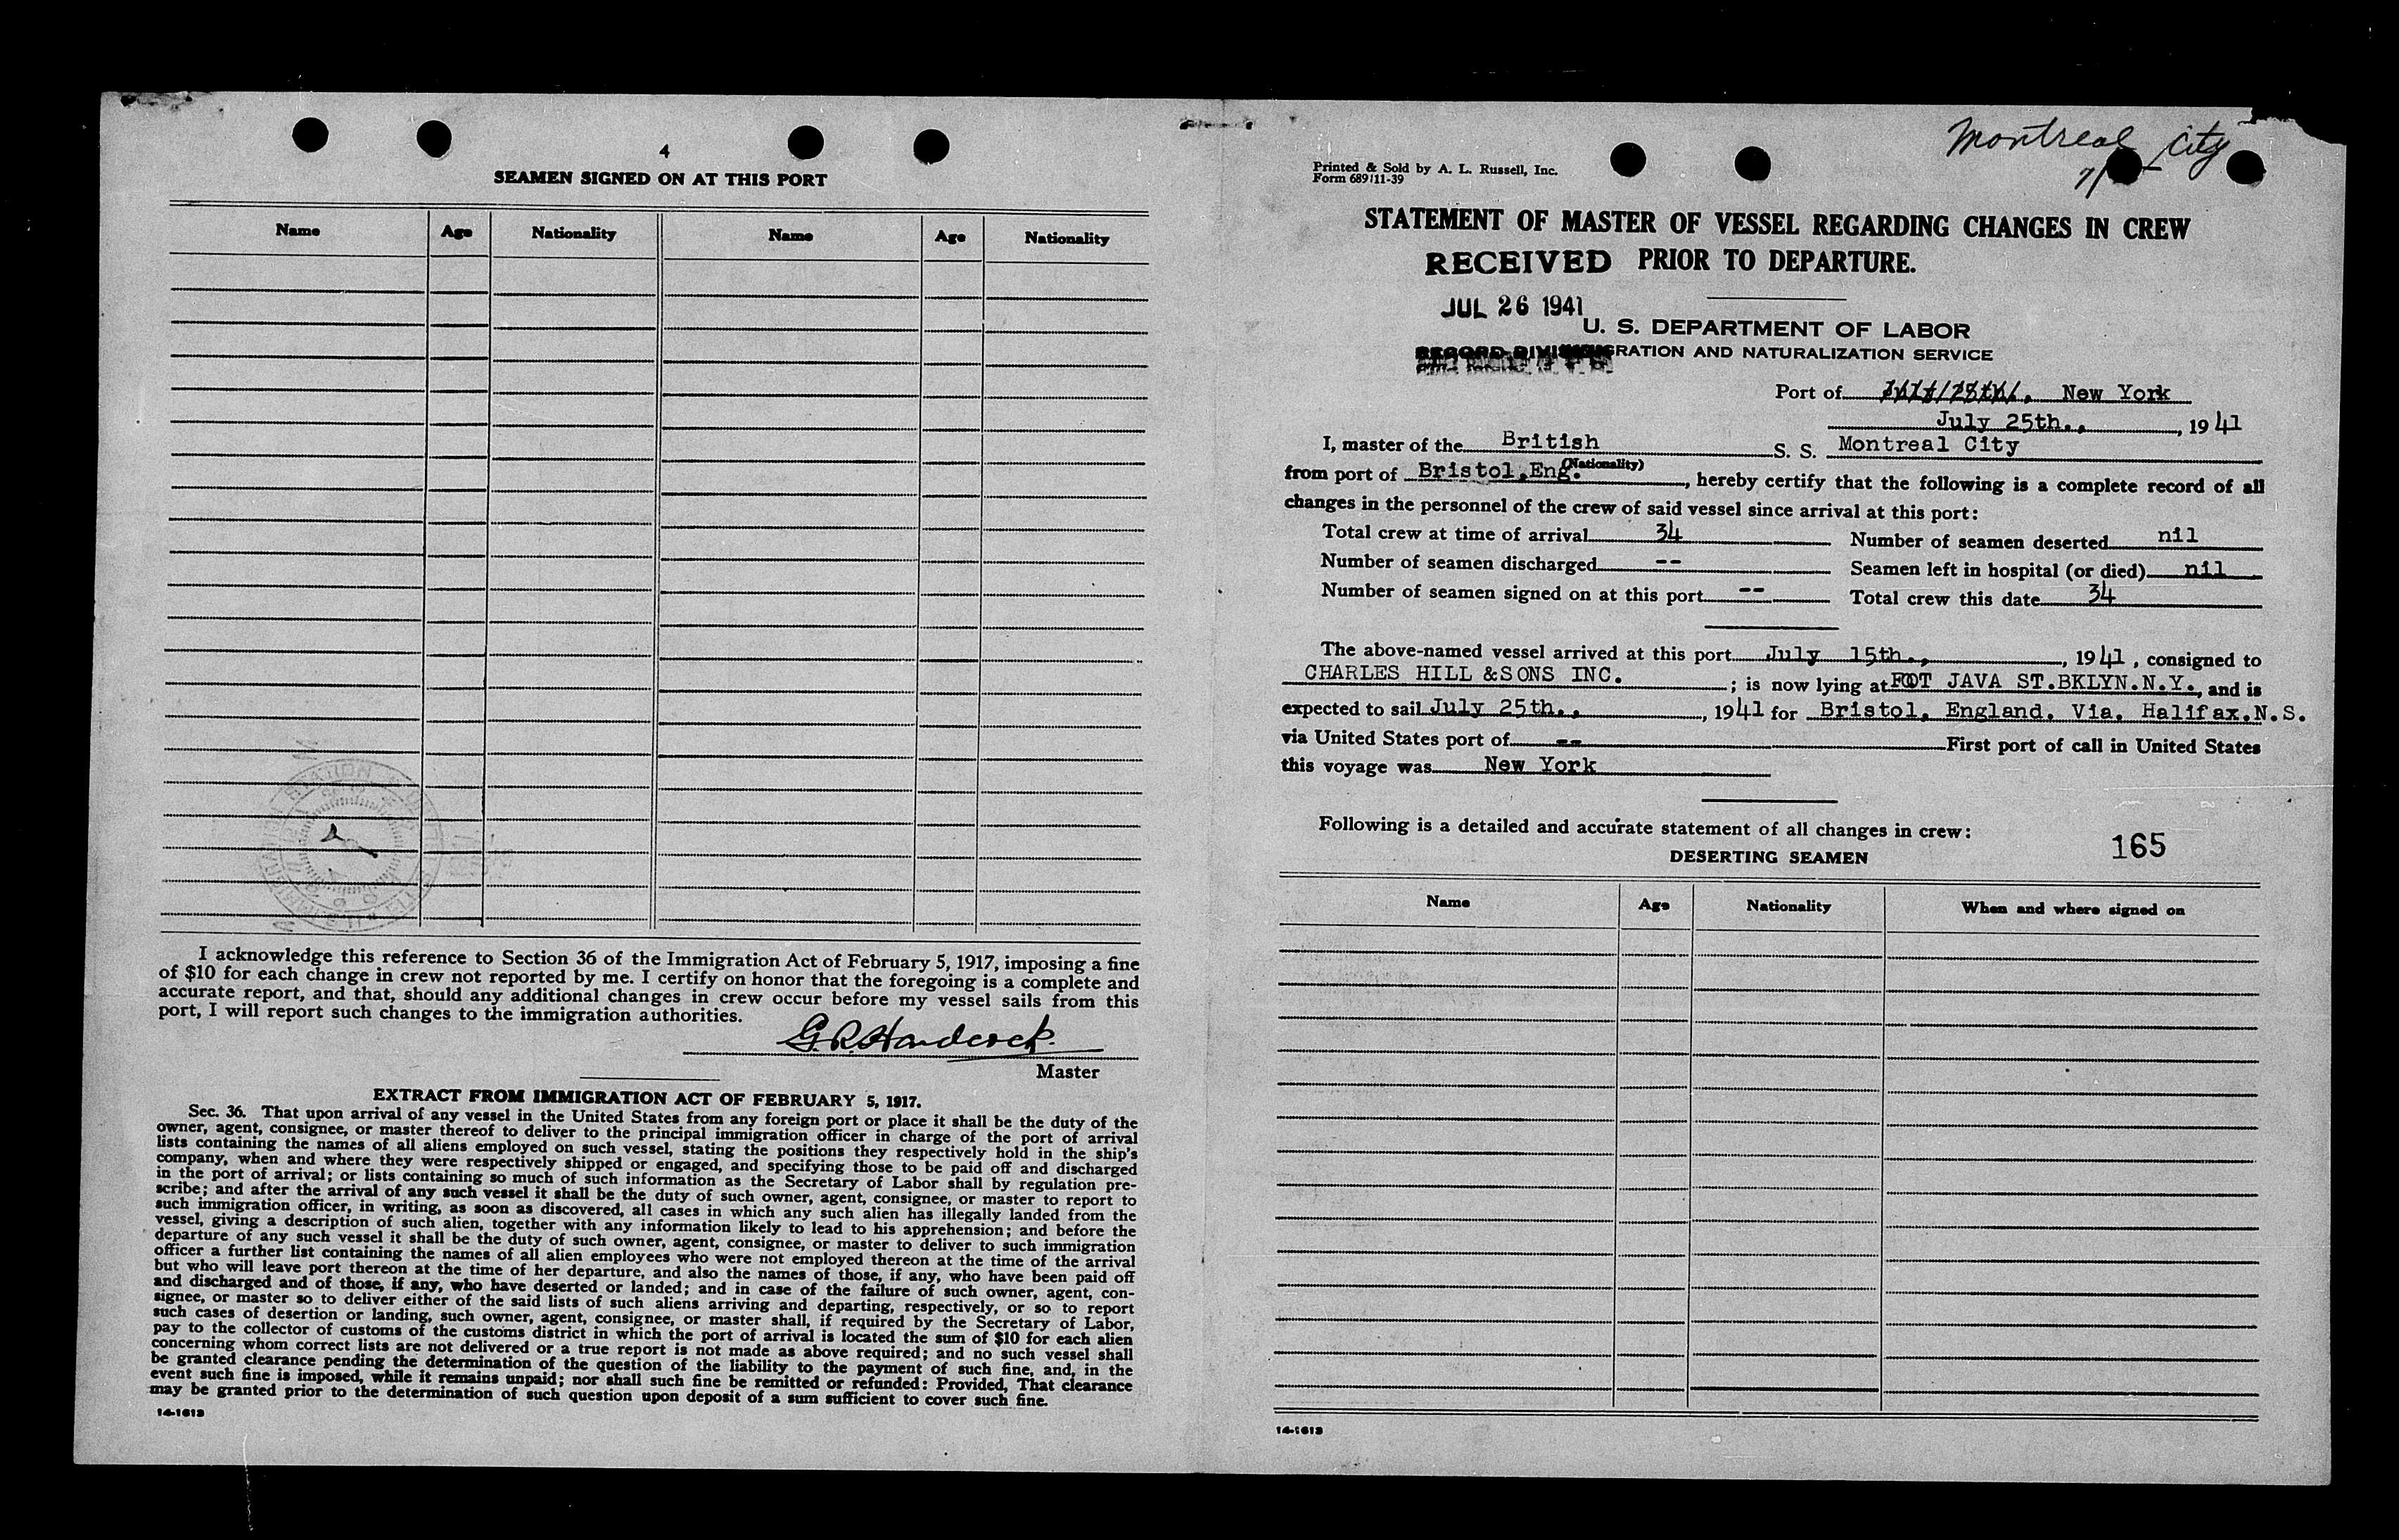 4
SEAMEN SIGNED ON AT THIS PORT
Name Age Nationality Name Age Nationality
I acknowledge this reference to Section 36 of the Immigration Act of February 5, 1917, imposing a fine
of $10 for each change in crew not reported by me. I certify on honor that the foregoing is a complete and
accurate report, and that, should any additional changes in crew occur before my vessel sails from this
port, I will report such changes to the immigration authorities.
Master
EXTRACT FROM IMMIGRATION ACT OF FEBRUARY 5, 1917.
Sec. 36. That upon arrival of any vessel in the United States from any foreign port or place it shall be the duty of the
owner, agent, consignee, or master thereof to deliver to the principal immigration officer in charge of the port of arrival
lists containing the names of all aliens employed on such vessel, stating the positions they respectively hold in the ship's
company, when and where they were respectively shipped or engaged, and specifying those to be paid off and discharged
in the port of arrival; or lists containing so much of such information as the Secretary of Labor shall by regulation pre-
scribe; and after the arrival of any such vessel it shall be the duty of such owner, agent, consignee, or master to report to
such immigration officer, in writing, as soon as discovered, all cases in which any such alien has illegally landed from the
vessel, giving a description of such alien, together with any information likely to lead to his apprehension; and before the
departure of any such vessel it shall be the duty of such owner, agent, consignee, or master to deliver to such immigration
officer a further list containing the names of all alien employees who were not employed thereon at the time of the arrival
but who will leave port thereon at the time of her departure, and also the names of those, if any, who have been paid off
and discharged and of those, if any, who have deserted or landed; and in case of the failure of such owner, agent, con-
signee, or master so to deliver either of the said lists of such aliens arriving and departing, respectively, or so to report
such cases of desertion or landing, such owner, agent, consignee, or master shall, if required by the Secretary of Labor,
pay to the collector of customs of the customs district in which the port of arrival is located the sum of $10 for each alien
concerning whom correct lists are not delivered or a true report is not made as above required; and no such vessel shall
be granted clearance pending the determination of the question of the liability to the payment of such fine, and, in the
event such fine is imposed, while it remains unpaid; nor shall such fine be remitted or refunded: Provided, That clearance
may be granted prior to the determination of such question upon deposit of a sum sufficient to cover such fine.
14-1613
Montreal City
Printed & Sold by A. L. Russell, Inc.
Form 689/11-39
STATEMENT OF MASTER OF VESSEL REGARDING CHANGES IN CREW
RECEIVED PRIOR TO DEPARTURE.
JUL 26 1941
U. S. DEPARTMENT OF LABOR
RECORD DIVI GRATION AND NATURALIZATION SERVICE
Port of New York
July 25th., , 1941
I, master of the British S. S. Montreal City
(Nationality)
from port of Bristol,Eng. , hereby certify that the following is a complete record of all
changes in the personnel of the crew of said vessel since arrival at this port:
Total crew at time of arrival 34 Number of seamen deserted nil
Number of seamen discharged -- Seamen left in hospital (or died) nil
Number of seamen signed on at this port -- Total crew this date 34
The above-named vessel arrived at this port July 15th., , 1941 , consigned to
CHARLES HILL &SONS INC. ; is now lying at FOOT JAVA ST.BKLYN.N.Y., and is
expected to sail July 25th., , 1941 for Bristol, England. Via. Halifax.N.S.
via United States port of -- First port of call in United States
this voyage was New York
Following is a detailed and accurate statement of all changes in crew:
165
DESERTING SEAMEN
Name Age Nationality When and where signed on
14-1613